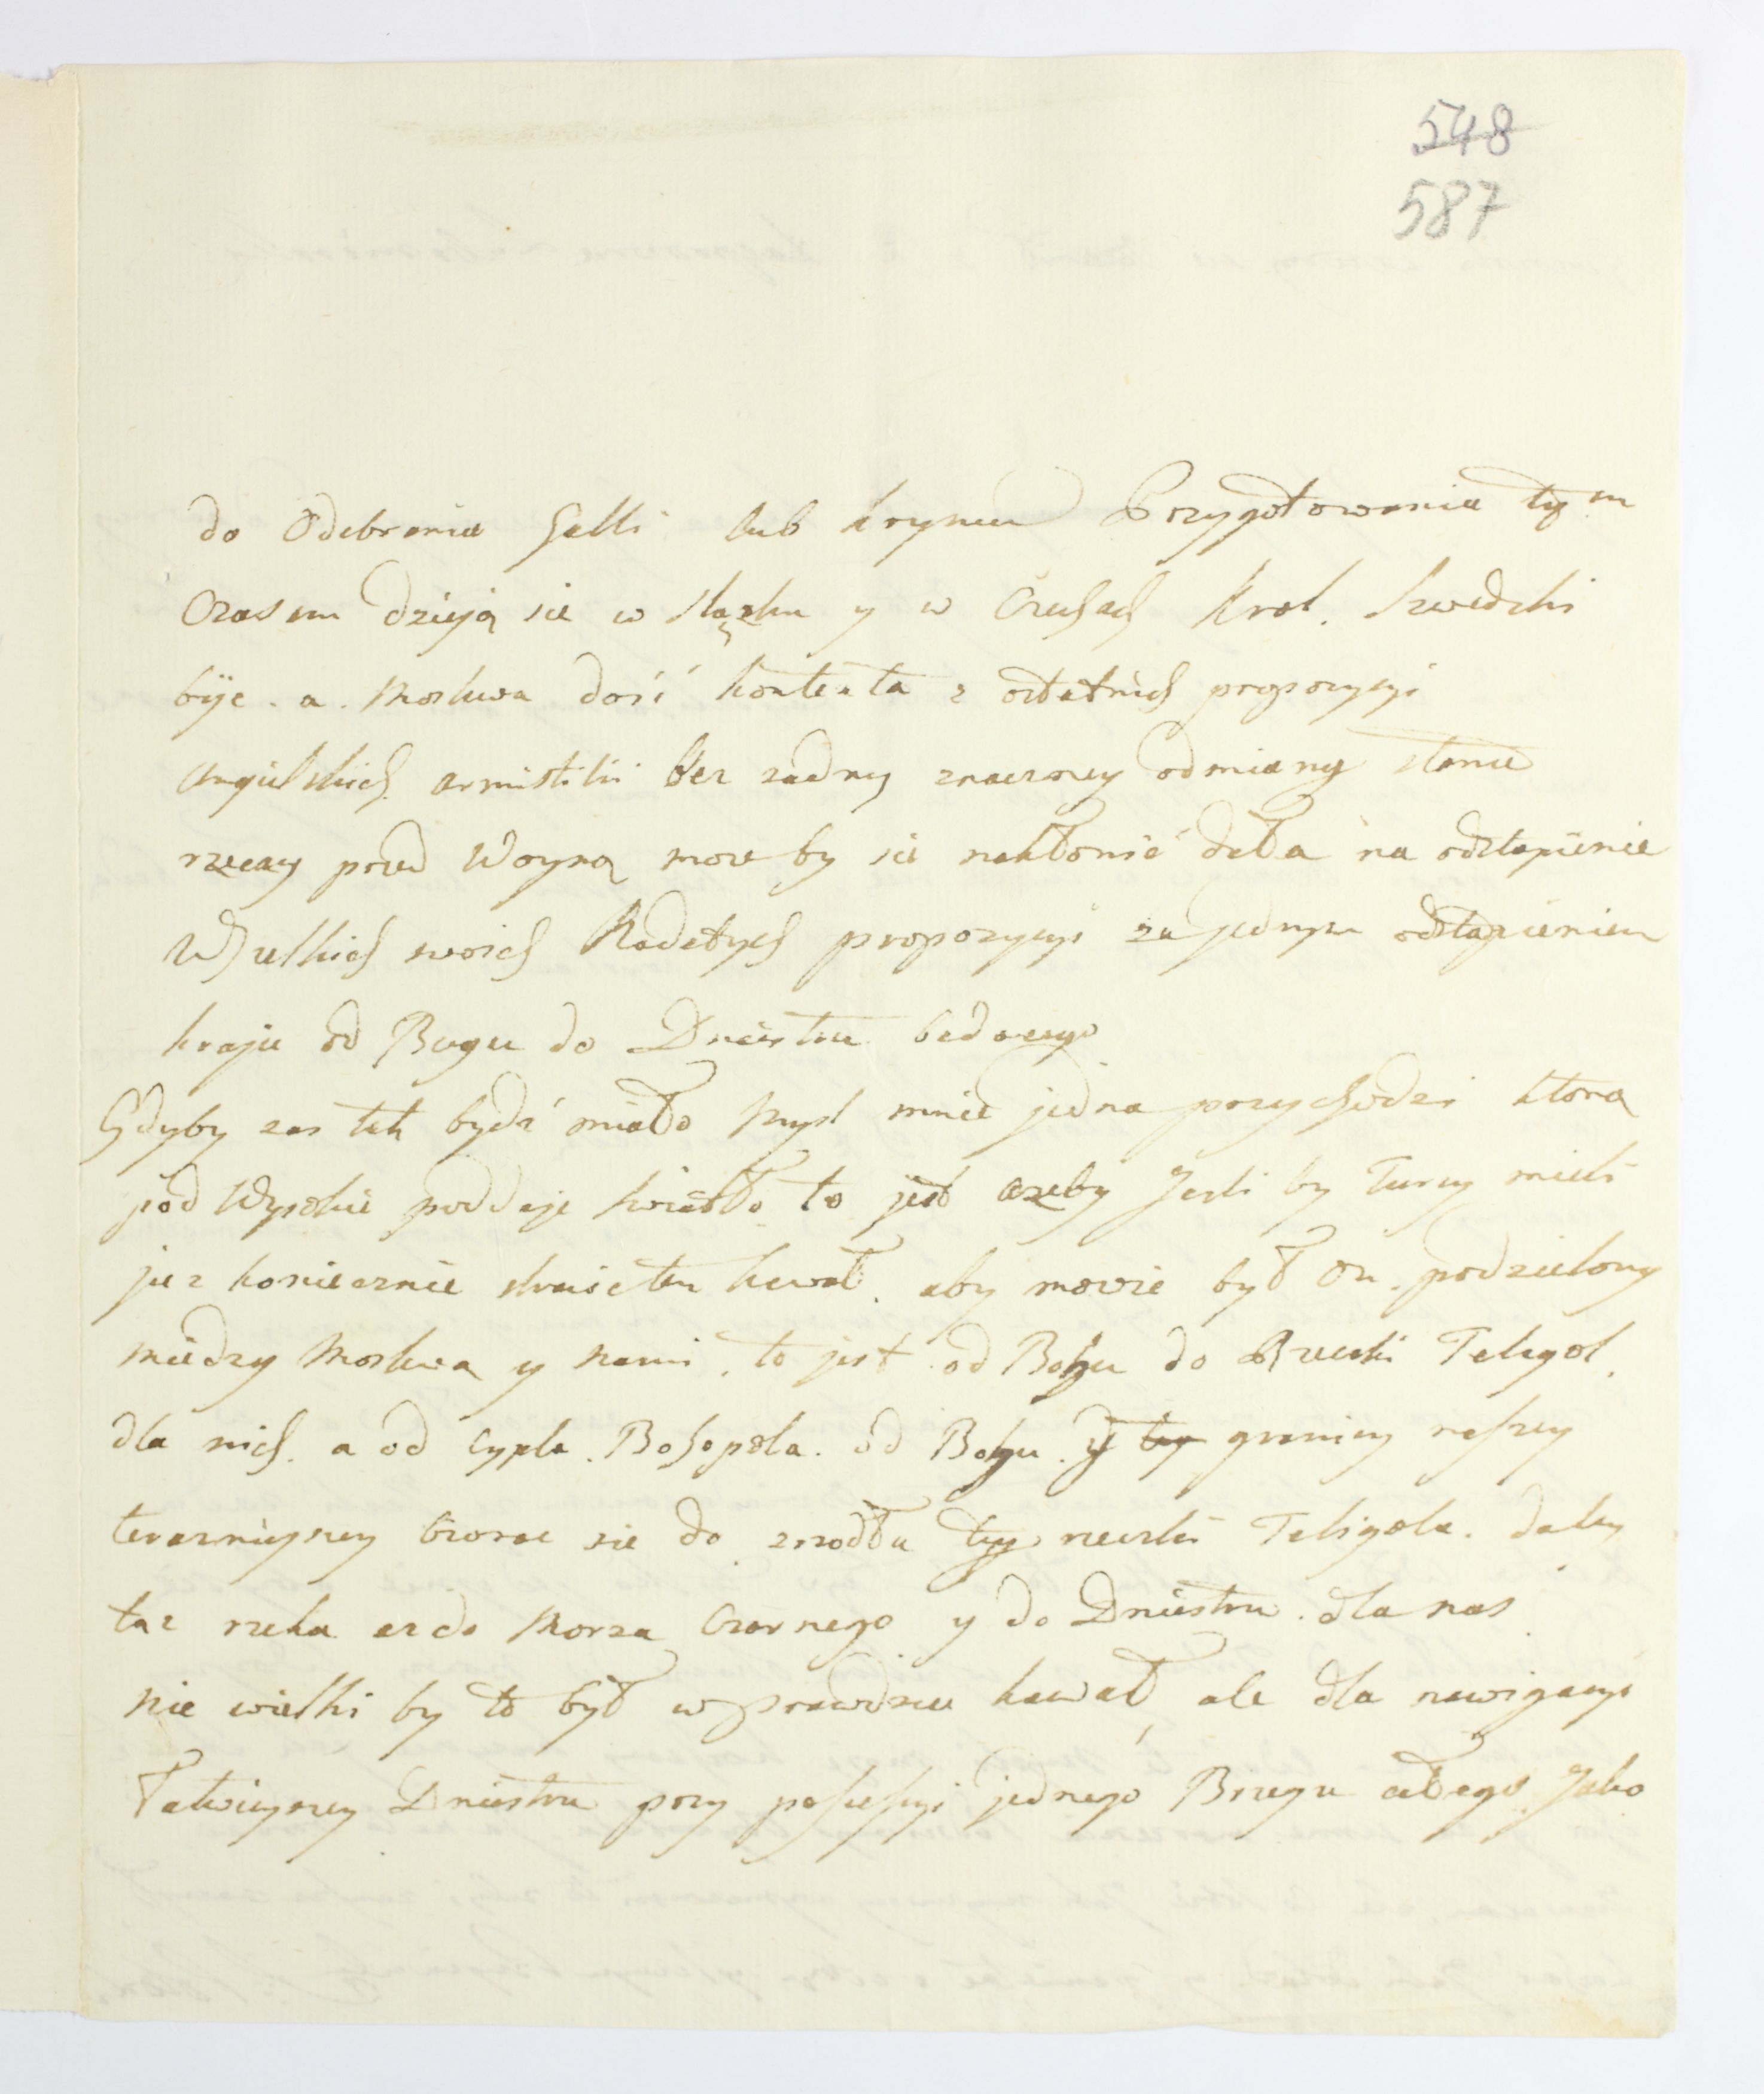 548
587
do Odebrania Galli lub krymu Przygotowania tym
Czasem dzieją sie w slązku y w Czechach Krol. Szwedzki
bije. a. Moskwa dość kontenta z ostatnich propozycyi
Angielskich armistiki bez zadney znaczney odmiany stanu
rzeczy przed Woyną moze by sie nakłonić dała na odstąpienie
Wszelkich swoich Nadętych propozycyi za jednym odstąpieniem
kraju od Bugu do Dniestru bedącego
Gdyby zas tak bydź miało Mysl mnie jedna przychodzi ktorą
pod Wysokie poddaje swiatło to jest azeby Jesli by Turcy mieli
juz koniecznie stracić ten kawał. aby mowie był On. podzielony
miedzy Moskwą y nami. to jest od Bohu do Rzeczki Teligol.
dla nich. a od cypla. Bohopola. od Bohu. y tey granicy naszey
teraznieyszey biorąc sie do zrzodła tey rzeczki Teligola. daley
taz rzeka az do Morza Czarnego y do Dniestru. dla nas.
nie wielki by to był wprawdzie kawał, ale dla nawigacyi
Łatwieyszey Dniestru przy possessyi jednego Brzegu całego Jako